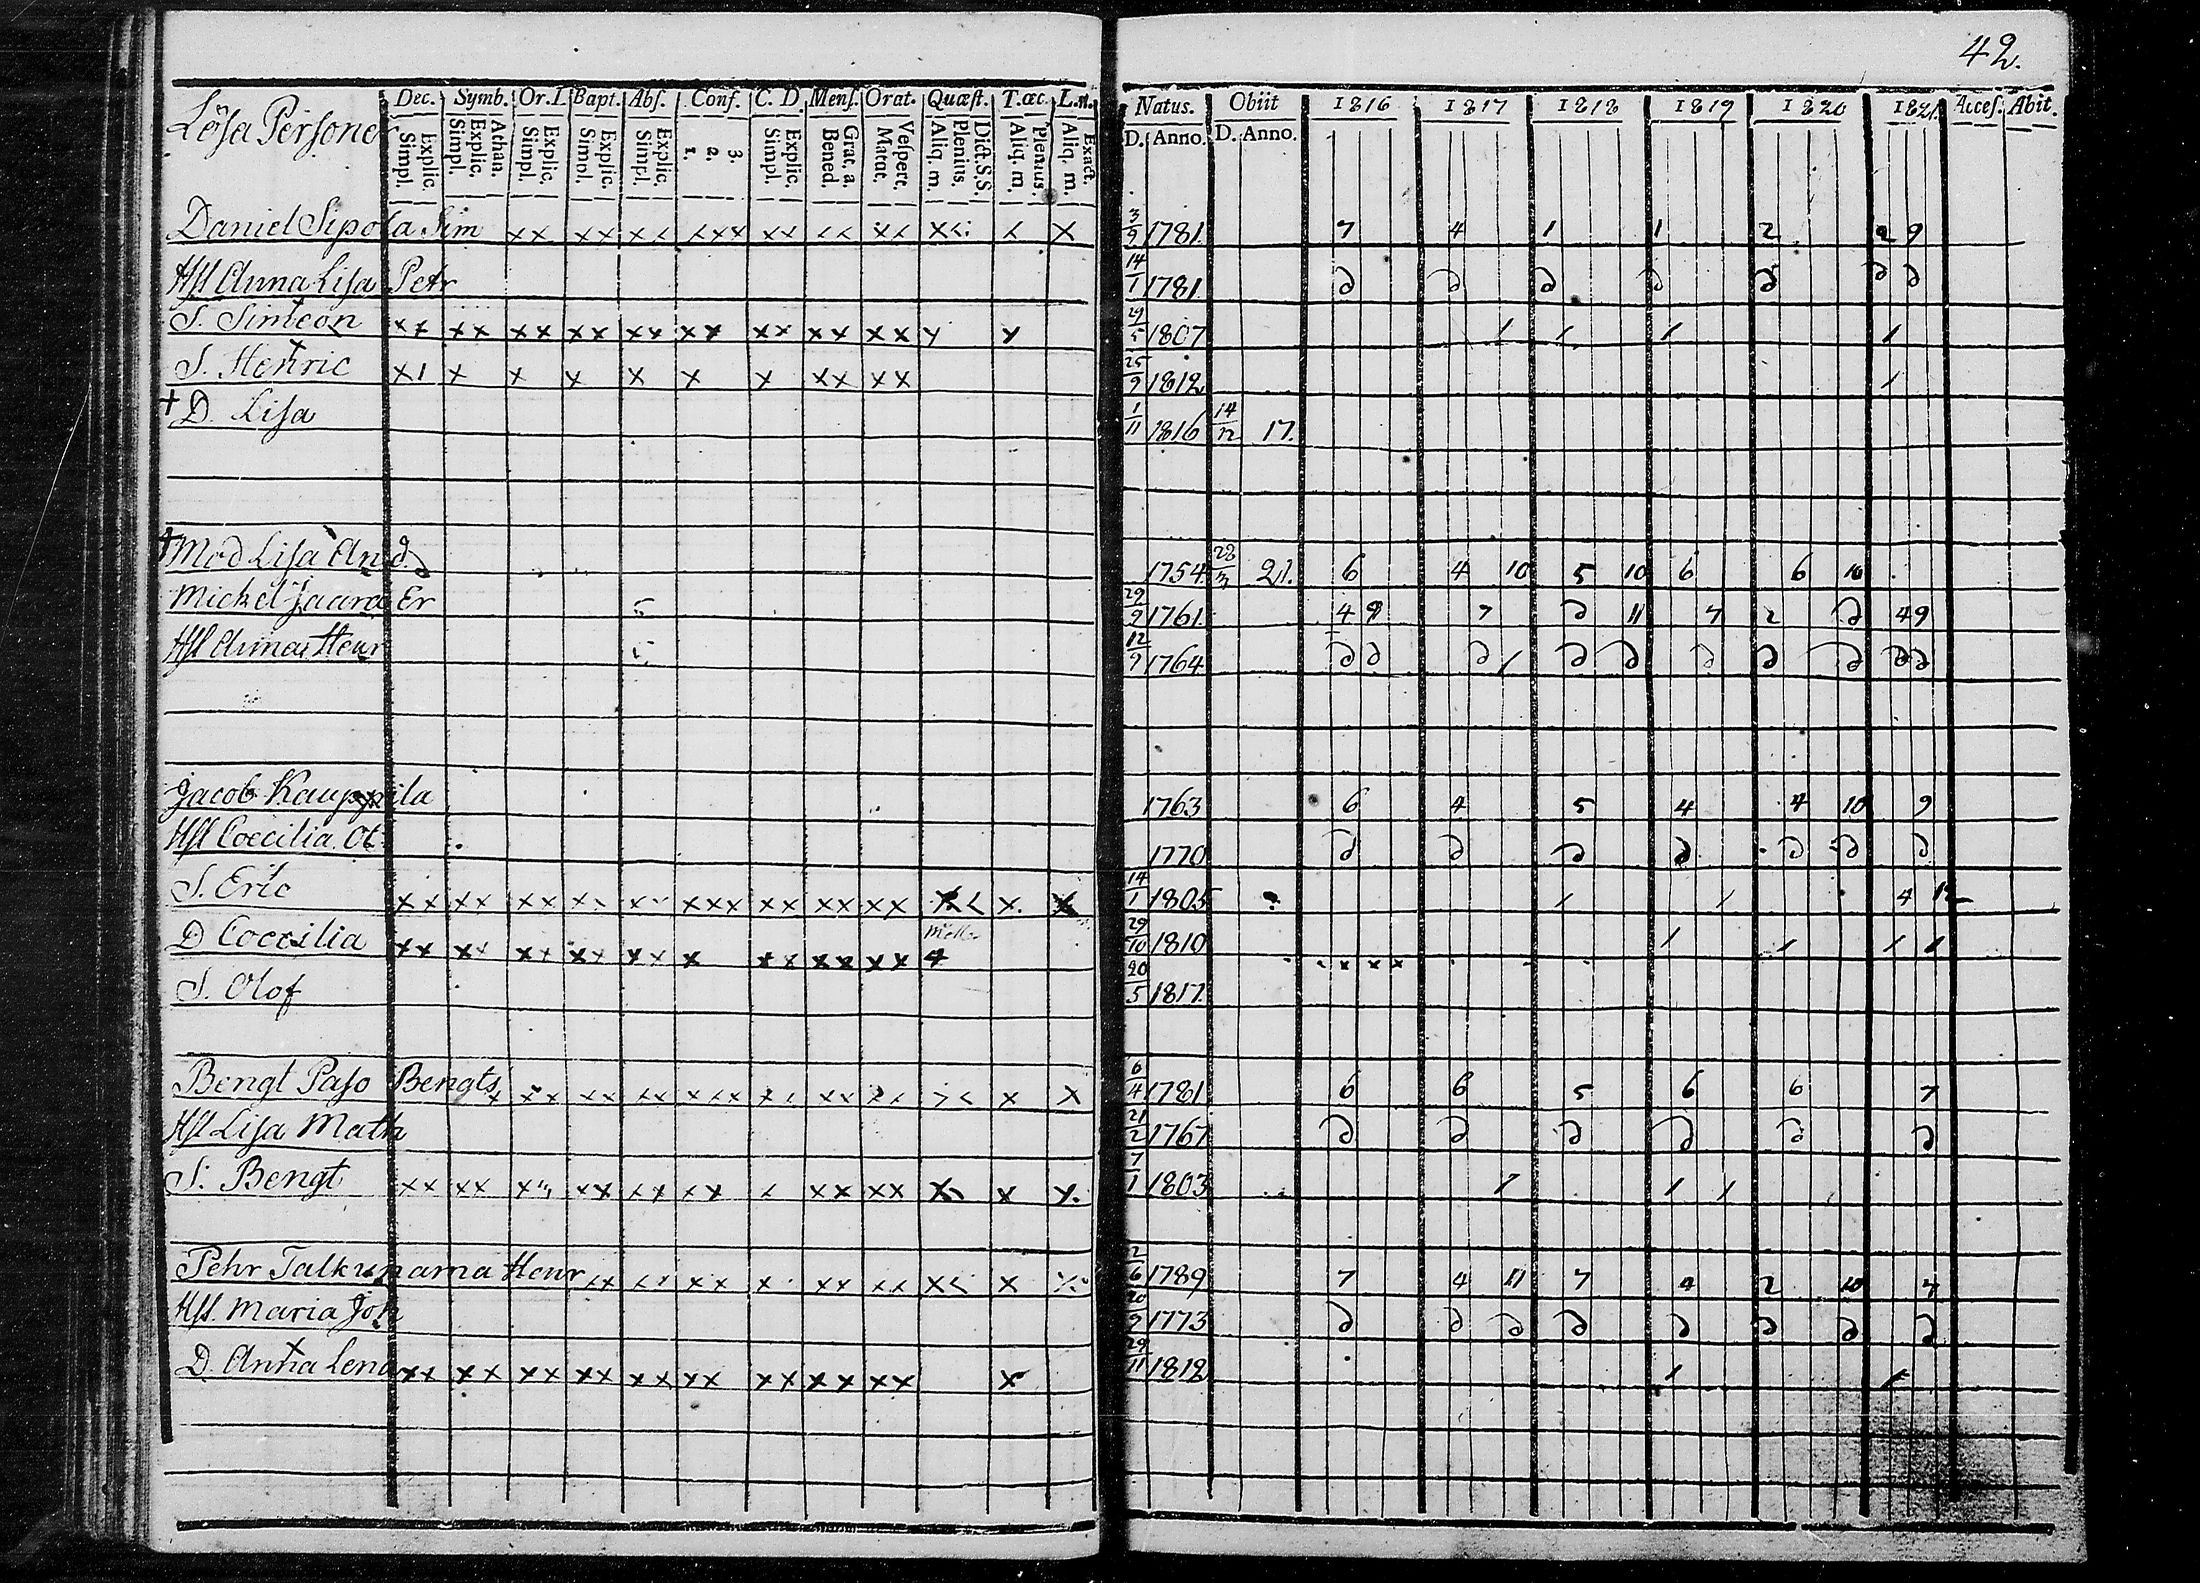 42.
Lösa Personer Dec. Symb. Or. I. Bapt. Abs. Conf. C. D. Mens. Orat. Quæst. T. œc. L. n. Natus. Obiit 1816 1817 1818 1819 1820 1821. Acces. Abit.
Explic. Simpl. Athan. Explic. Simpl. Explic. Simpl. Explic. Simpl. Explic. Simpl. 3. 2. 1. Explic. Simpl. Grat. a. Bened. Vespert. Matut. Dict. S.S. Plenius. Aliq. m. Plenius. Aliq. m. Exact. Aliq. m. D. Anno. D. Anno.
Daniel Sipola Sim 3/9 1781 7 4 1 1 2 2 9
Hst Anna Lisa Petr 14/1 1781
S. Simeon xx xx xx xx xx xx xx xx xx 29/5 1807 1 1 1 1
S. Henric x1 x x x x x x xx xx 25/9 1812 1
+ D. Lisa 1/11 1816 14/12 17.
+ Mod Lisa And. 1754 21. 6 4 10 5 10 6 6 10
Michel Jaara Er 5 29/9 1761 4 9 7 11 7 2 4 9
Hst Anna Henr 12/9 1764
Jacob Kauppila 1763 6 4 5 4 4 10 9
Hst Coecilia Ol 1770
S. Eric xx xx xx xx xxx xx xx xx x x 14/1 1805 1 1 4 12
D Coecilia xx xx xx xx xx x xx xx xx 4 29/10 1810 1 1 1 1
S. Olof 20/5 1817
Bengt Paso Bengts 6/4 1781 6 6 5 6 6 7
Hst Lisa Math 21/2 1767
S. Bengt xx xx xx xx xx xx xx x x 7/1 1803 1 1 1
Pehr Talkunarna Henr xx xx xx x xx xx x x 2/6 1789 7 4 11 7 4 2 10 7
Hst. Maria Joh 20/9 1773
D. Anna Lena xx xx xx xx xx xx xx xx xx x 29/11 1812 1 1